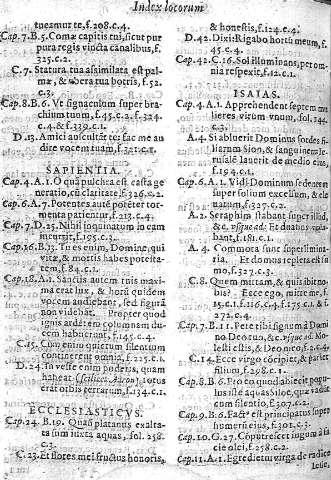 Index locorum
tueamur te, f.208.c.4.
Cap.7.B.5. Coma capitis tui, sicut pur
pura regis vincta canalibus, f.
325.c.2.
C.7. Statura tua assimilata est pal-
mæ, & vbera tua botris, f.52.
c.3.
Cap.8.B.6. Vt signaculum super bra-
chium tuum, f.45.c.2. f.324.
c.4. & f.339.c.1.
D.13. Amici auscultēt te: fac me au
dire vocem tuam, f.321.c.1.
SAPIENTIA.
Cap.4.A.1. O quā pulchra est casta ge
neratio, cū claritate, f.326.c.2.
Cap.6.A.7. Potentes autē potēter tor-
menta patientur, f.213.c.4.
Cap.7.D.25. Nihil inquinatum in eam
incurrit, f.195.c.3.
Cap.16.B.13. Tu es enim, Domine, qui
vitæ, & mortis habes potesta-
tem, f.84.c.1.
Cap.18.A.1. Sanctis autem tuis maxi-
ma erat lux, & horū quidem
vocem audiebant, sed figurā
non videbāt. Propter quod
ignis ardētem columnam du-
cem habuerunt, f.145.c.4.
C.15. Cum enim quietum silentium
contineret omnia, f.225.c.1.
D.24. In veste enim poderis, quam
habeat (scilicet Aaron) totus
erat orbis terrarum, f.134.c.1.
ECCLESIASTICVS.
Cap.24.B.19. Quasi platanus exalta-
ta sum iuxta aquas, fol. 258.
c.3.
C.23. Et flores mei fructus honoris,
& honestis, f.124.c.4.
D.42. Dixi: Rigabo hortū meum, f.
45.c.4.
Cap.42.C.16. Sol illuminans, per om-
nia respexit, f.12.c.1.
ISAIAS.
Cap.4.A.1. Apprehendent septem mu
lieres virum vnum, fol. 244.
c.3.
A.4. Si abluerit Dominus sordes fi-
liarum Sion, & sanguinem Ie-
rusalē lauerit de medio eius,
f.194.c.1.
Cap.6.A.1. Vidi Dominum sedentem
super solium excelsum, & ele
uatum, f.327.c.2.
A.2. Seraphim stabant super illud,
&c. vsque ad: Et duabus vola-
bant, f.181.c.1.
A.4. Commota sunt superlimina-
ria. Et domus repleta est fu
mo, f.327.c.3.
C.8. Quem mittam, & quis ibit no-
bis? Ecce ego, mitte me, f.
45.c.1. f.116.c.4. f.175.c.1. &
272.c.4.
Cap.7.B.11. Pete tibi signum à Domi
no Deo tuo, &c. vsque ad: No-
lestis estis, & Deo meo, f.2.c.4
C.14. Ecce virgo cōcipiet, & pariet
filium, f.298.c.1.
Cap.8.B.6. Pro eo quod abiecit popu-
lus iste aquas Siloe, quæ vadūt
cum silentio, f.307.c.2.
Cap.9.B.6. Fact' est principatus super
humerū eius, f.101.c.3.
Cap.10.G.27. Cōputrescet iugum à fa
cie olei, f.258.c.2.
Cap.11.A.1. Egredietur virga de radice